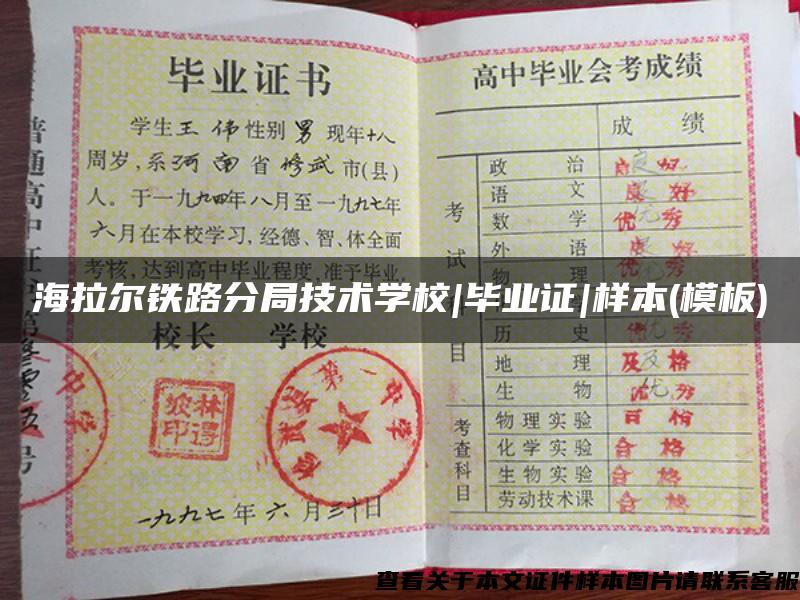 毕业证书
学生王伟性别男现年十八
周岁,系河南省修武市(县)
人。于一九九四年八月至一九九七年
六月在本校学习,经德、智、体全面
考核,达到高中毕业程度,准予毕业。
校长 学校
一九九七年六月三十日
高中毕业会考成绩
成绩
考试科目
政治 良好
语文 良好
数学 优秀
外语 良好
物理
历史 优
地理 及格
生物 优秀
考查科目
物理实验 合格
化学实验 合格
生物实验 合格
劳动技术课 合格
普通高中证
号
第一中学
海拉尔铁路分局技术学校|毕业证|样本(模板)
查看关于本文证件样本图片请联系客服